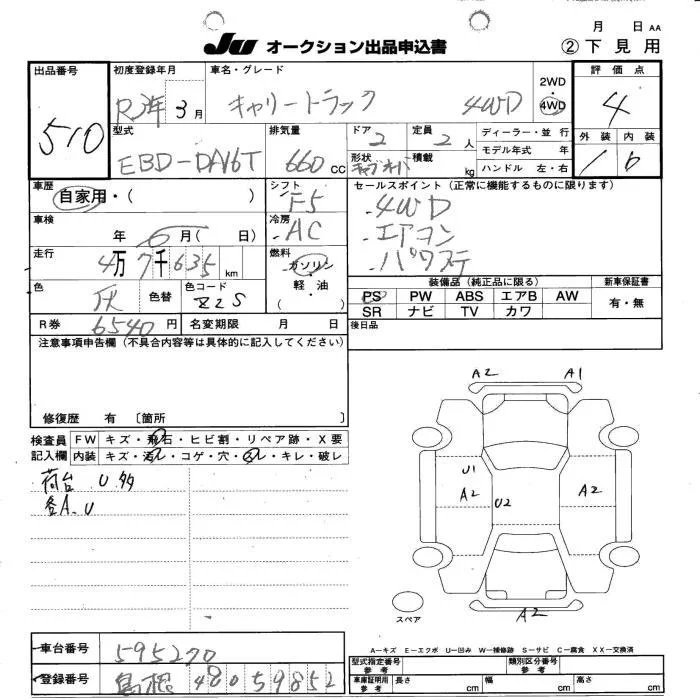 月 日 AA
JU オークション出品申込書 ② 下見用
出品番号 初度登録年月 車名・グレード 2WD ・ 4WD 評価点
510 3月 キャリートラック 4WD 4
型式 排気量 ドア 定員 ディーラー・並行 外装 内装
EBD-DA16T 660cc 2 2人 モデル年式 年
形状 積載 kg ハンドル 左・右
車歴 シフト セールスポイント(正常に機能するものに限ります)
自家用・( ) F5 ・4WD
車検 冷房 ・エアコン
年 6月( 日) AC ・パワステ
走行 燃料
4万7千635km ガソリン・軽油・( )
色 色替 色コード 装備品(純正品に限る) 新車保証書
灰 Z2S PS PW ABS エアB AW 有・無
SR ナビ TV カワ
R券 6540円 名変期限 月 日 後日品
注意事項申告欄(不具合内容等は具体的に記入してください)
修復歴 有 〔箇所 〕
検査員記入欄 FW キズ・飛石・ヒビ割・リペア跡・X要
内装 キズ・汚レ・コゲ・穴・スレ・キレ・破レ
荷台 U多
各A.U
A2 A1
U1
A2 U2 A2
A2
スペア
A-キズ E-エクボ U-凹み W-補修跡 S-サビ C-腐食 XX-交換済
車台番号 595270
登録番号 島根 480 59852
型式指定番号 参考 類別区分番号 参考
車庫証明用 参考 長さ cm 幅 cm 高さ cm